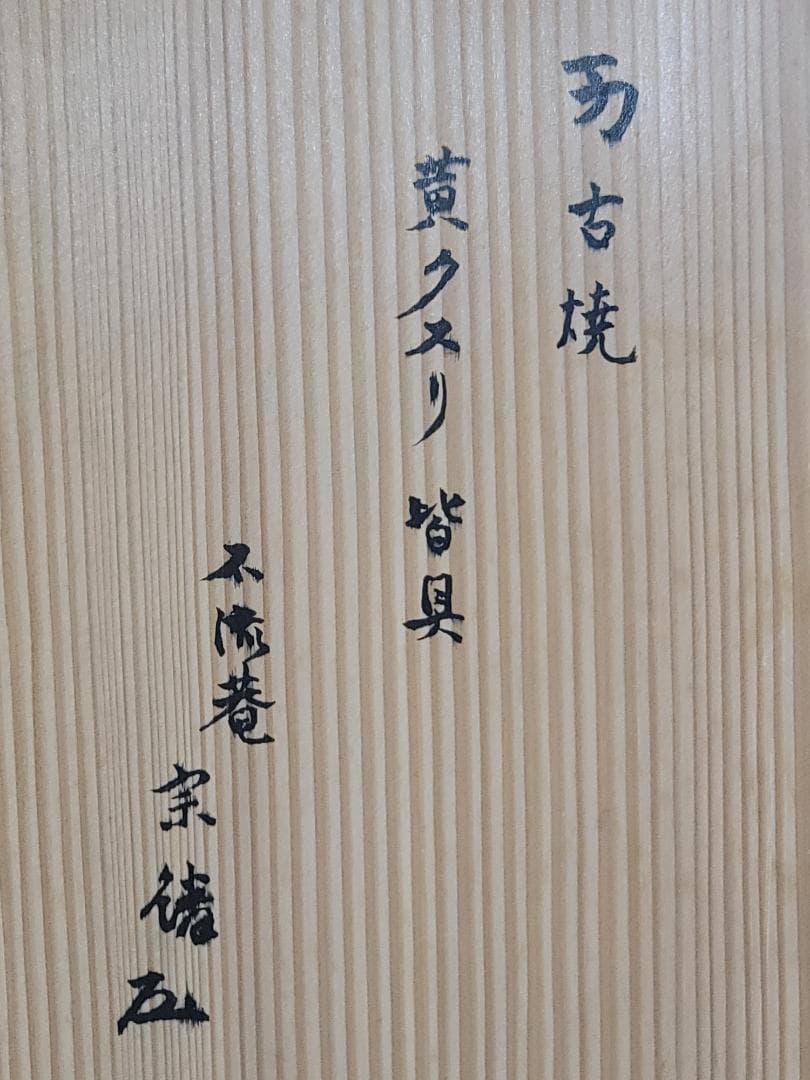 万古焼
黄クスリ 皆具
不流庵
宗